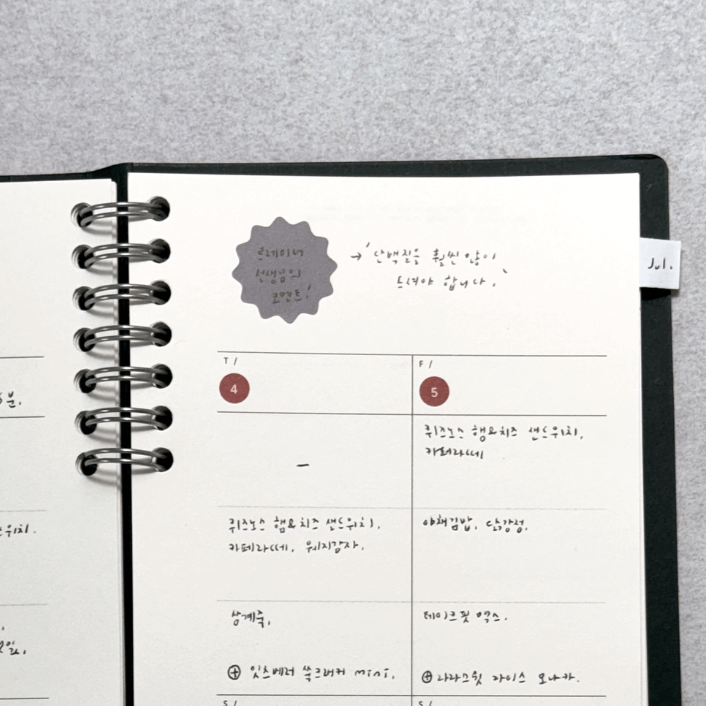 트레이너
선생님의
코멘트!
→ '단백질을 훨씬 많이
드셔야 합니다.'
Jul.
T /
F /
4
5
분.
퀴즈노스 햄&치즈 샌드위치,
카페라떼
—
드위치.
퀴즈노스 햄&치즈 샌드위치,
카페라떼, 웨지감자.
야채김밥, 닭강정.
삼계죽,
테이크핏 맥스.
일,
⊕ 잇츠베러 쑥크래커 mini.
⊕ 라라스윗 라이스 모나카.
S /
S /